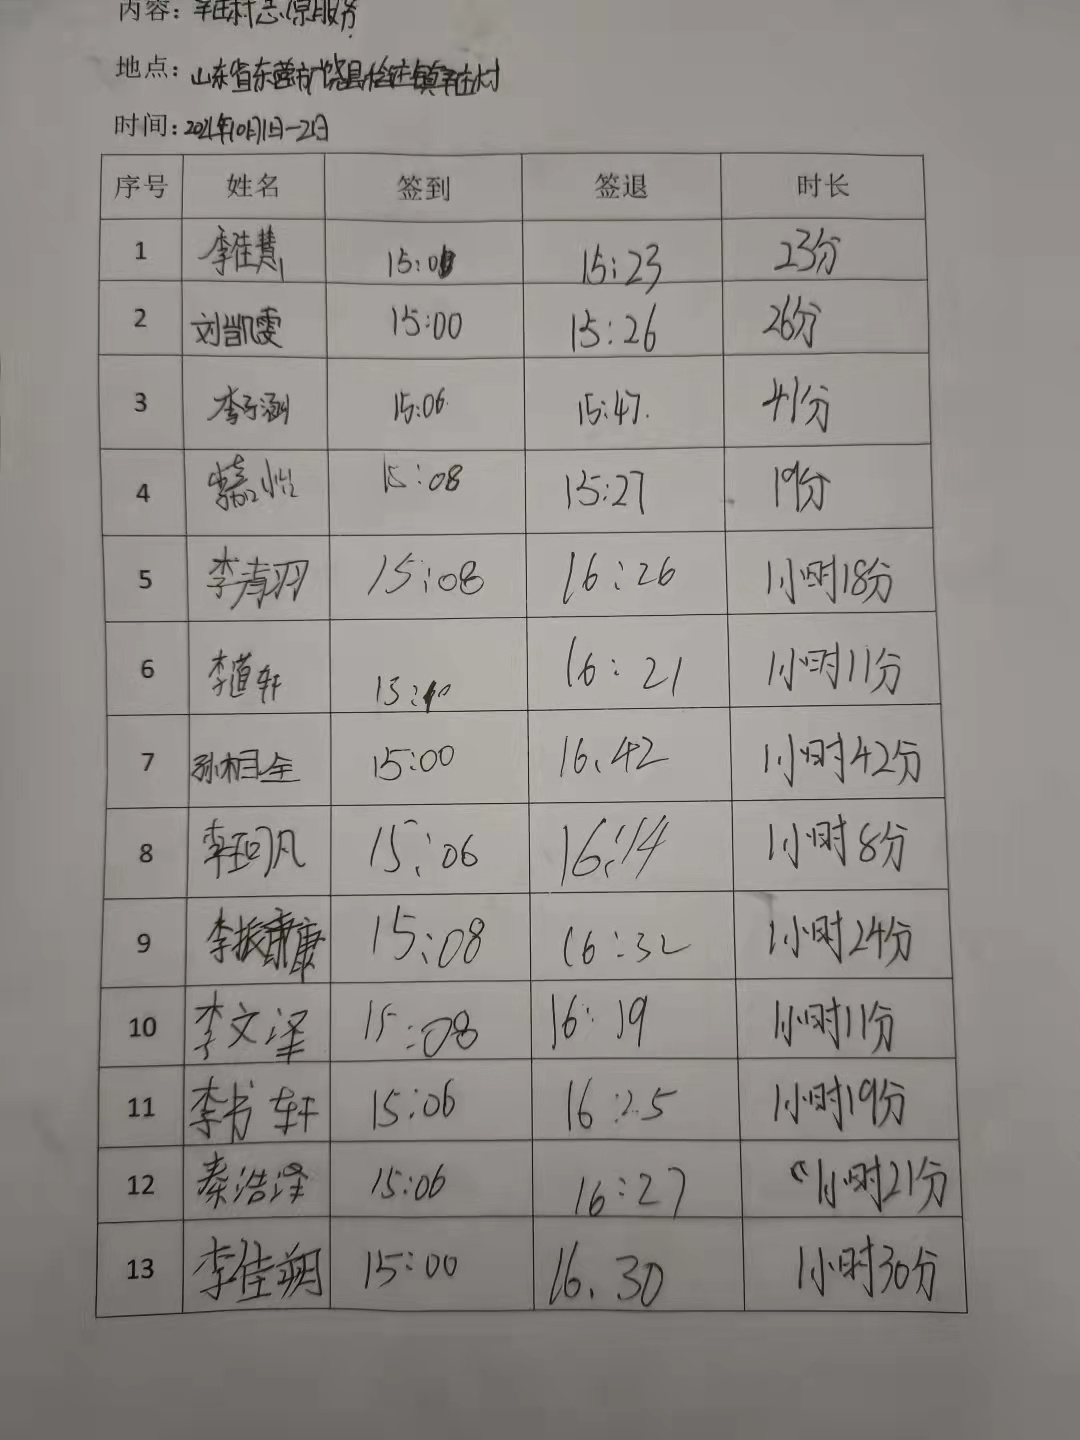 内容：辛庄村志愿服务
地点：山东省东营市广饶县稻庄镇辛庄村
时间：2021年10月1日-21日
序号 姓名 签到 签退 时长
1 李佳慧 15:00 15:23 23分
2 刘凯雯 15:00 15:26 26分
3 李子涵 15:06 15:47. 41分
4 李嘉怡 15:08 15:27 19分
5 李青羽 15:08 16:26 1小时18分
6 李道轩 15:10 16:21 1小时11分
7 孙相全 15:00 16.42 1小时42分
8 李珂凡 15:06 16:14 1小时8分
9 李振康 15:08 16:32 1小时24分
10 李文泽 15:08 16:19 1小时11分
11 李书轩 15:06 16:25 1小时19分
12 秦浩泽 15:06 16:27 1小时21分
13 李佳朔 15:00 16.30 1小时30分